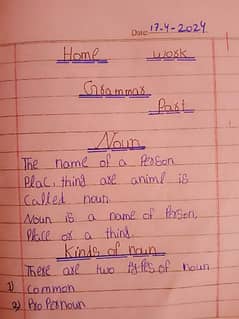 Date: 17-4-2024
Home work
Grammar
Part
Noun
The name of a Person
Plac, thind are animl is
Called noun
Noun is a name of Person,
Place or a thind.
Kinds of noun
There are two types of noun
1) Common
2) Pro Per noun